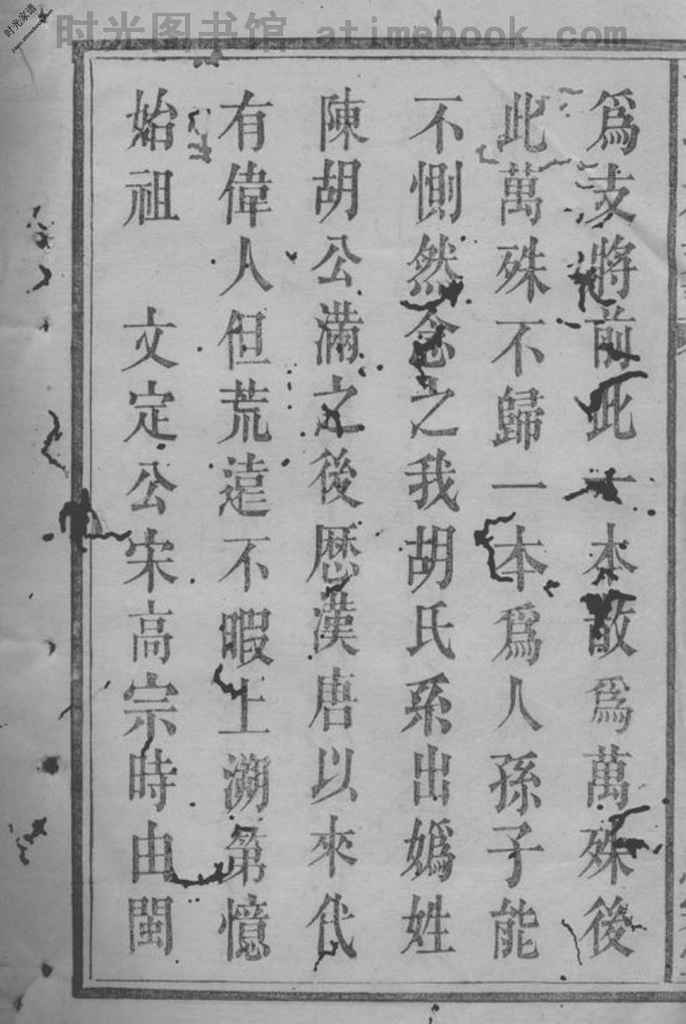 時光图书馆 atimebook.com
时光家谱
爲支將前此一本散爲萬殊後
此萬殊不歸一本爲人孫子能
不惻然念之我胡氏系出嬀姓
陳胡公滿之後歷漢唐以來代
有偉人但荒遠不暇上溯第憶
始祖　文定公宋高宗時由閩